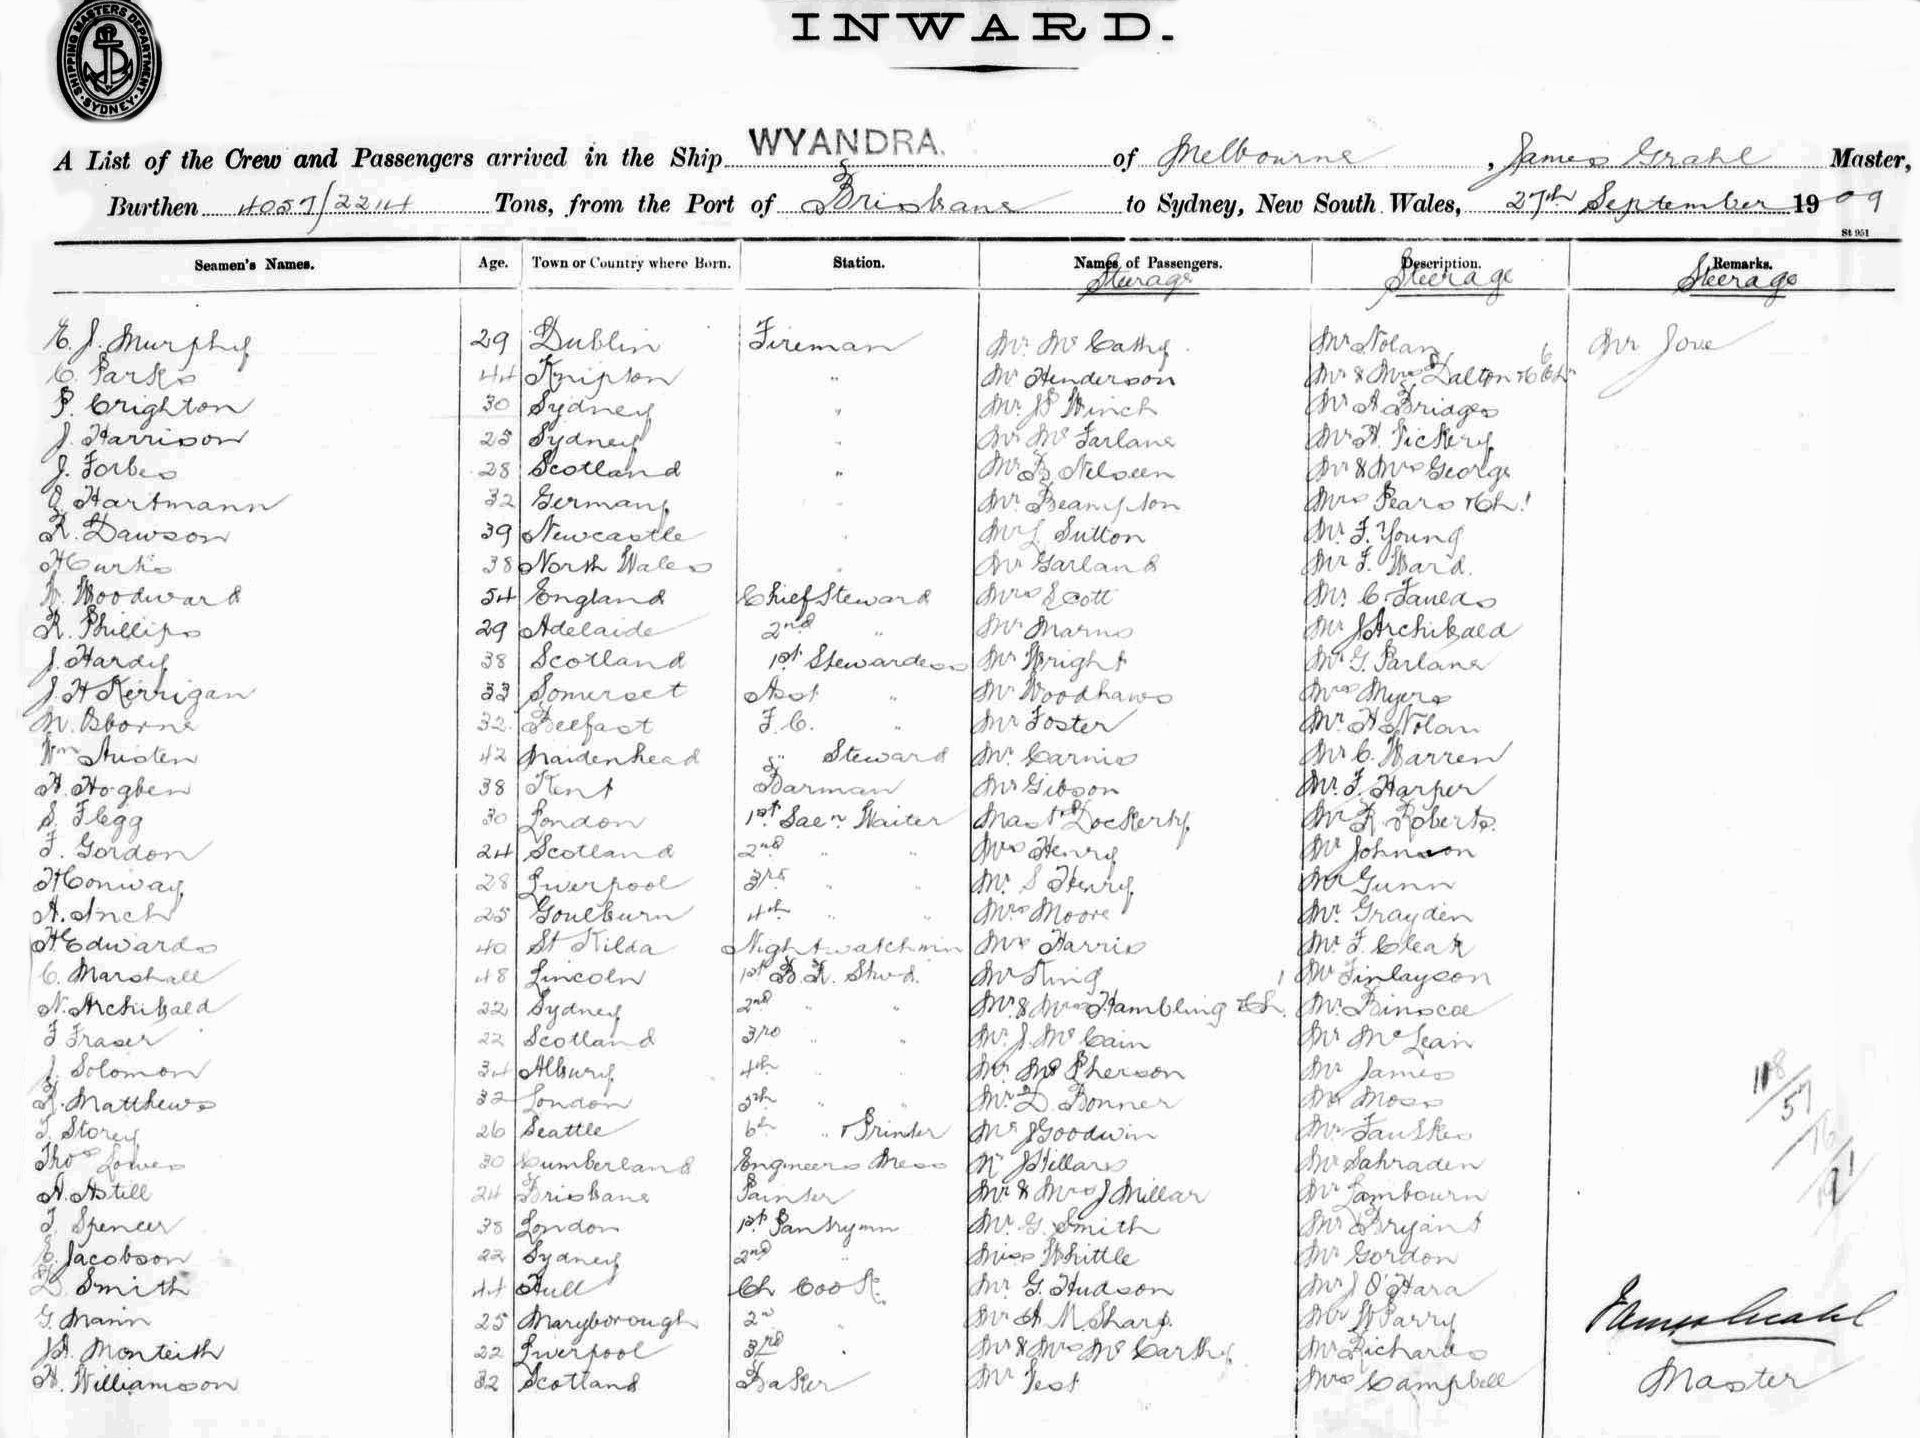 SHIPPING MASTERS DEPARTMENT SYDNEY
INWARD.
A List of the Crew and Passengers arrived in the Ship WYANDRA. of Melbourne, James Grahl Master,
Burthen 4057/2214 Tons, from the Port of Brisbane to Sydney, New South Wales, 27th September 1909
St 951
Seamen's Names. Age. Town or Country where Born. Station. Names of Passengers. Description. Remarks.
Steerage Steerage Steerage
E. J. Murphy 29 Dublin Fireman Mr. McCathy Mr Nolan Mr Jove
C. Parks 44 Knipton " Mr Henderson Mr & Mrs Dalton & 6 Ch
P. Crighton 30 Sydney " Mr. J P Winch Mr A Bridges
J. Harrison 25 Sydney " Mr McFarlane Mr H. Vickery
J. Forbes 28 Scotland " Mr B Nelseen Mr & Mrs George
Hartmann 32 Germany " Mr Beampton Mrs Pears & Ch 1
R. Dawson 39 Newcastle " Mr L Sutton Mr. F. Young
H Curtis 38 North Wales " Mr Garland Mr F. Ward.
W. Woodward 54 England Chief Steward Mrs Scott Mr. C. Faulds
R. Phillips 29 Adelaide 2nd " Mr Marns Mr J Archibald
J. Hardy 38 Scotland 1st Stewardess Mr Wright Mr G. Parlane
J. H Kerrigan 33 Somerset Asst " Mr Woodhaws Mrs Myers
M. Osborne 32 Belfast F. C. " Mr Foster Mr. H Nolan
Wm Austen 42 Maidenhead " Steward Mr. Carnis Mr C. Warren
H. Hogben 38 Kent Barman Mr Gibson Mr. F. Harper
S. Flegg 30 London 1st Saln Waiter Mast Dockerty Mr R Roberts.
F. Gordon 24 Scotland 2nd " " Mrs Henry Mr Johnson
H Conway 28 Liverpool 3rd " " Mr. S Henry Mr Gunn
A. Inch 25 Goulburn 4th " " Mrs Moore Mr. Grayden
H Edwards 40 St Kilda Nightwatchmin Mrs Harris Mr. F. Cleak
C. Marshall 48 Lincoln 1st B. R. Stwd. Mr King Mr Finlayson
N. Archibald 22 Sydney 2nd " " Mr. & Mrs Hambling & Ch. 1 Mr. Binscoe
F Fraser 22 Scotland 3rd " " Mr. J. McCain Mr McLean
J. Solomon 34 Albury 4th " " Mr. McPherson Mr James
Matthews 32 London 5th " " Mr. D. Bonner Mr Moss
Storey 26 Seattle 6th " & Printer Mr J Goodwin Mr Fauskes
Thos Lowes 30 Cumberland Engineers Mess J Hillars Mr Sahraden
A. Astill 24 Brisbane Painter Mr & Mrs J Millar Mr Lambourn
F. Spencer 38 London 1st Pantrymn Mr. G. Smith Mr Bryant
E. Jacobson 22 Sydney 2nd " Miss Whittle Mr Gordon
D. Smith 44 Hull Ch Cook. Mr. G. Hudson Mr J O'Hara
G. Mann 25 Maryborough 2n " Mr A M. Sharp. Mr W Parry James Grahl
J A. Monteith 22 Liverpool 3rd " Mr & Mrs McCarthy. Mr Richards
H. Williamson 32 Scotland Baker Mr Test Mrs Campbell Master
118/57
/16
/191